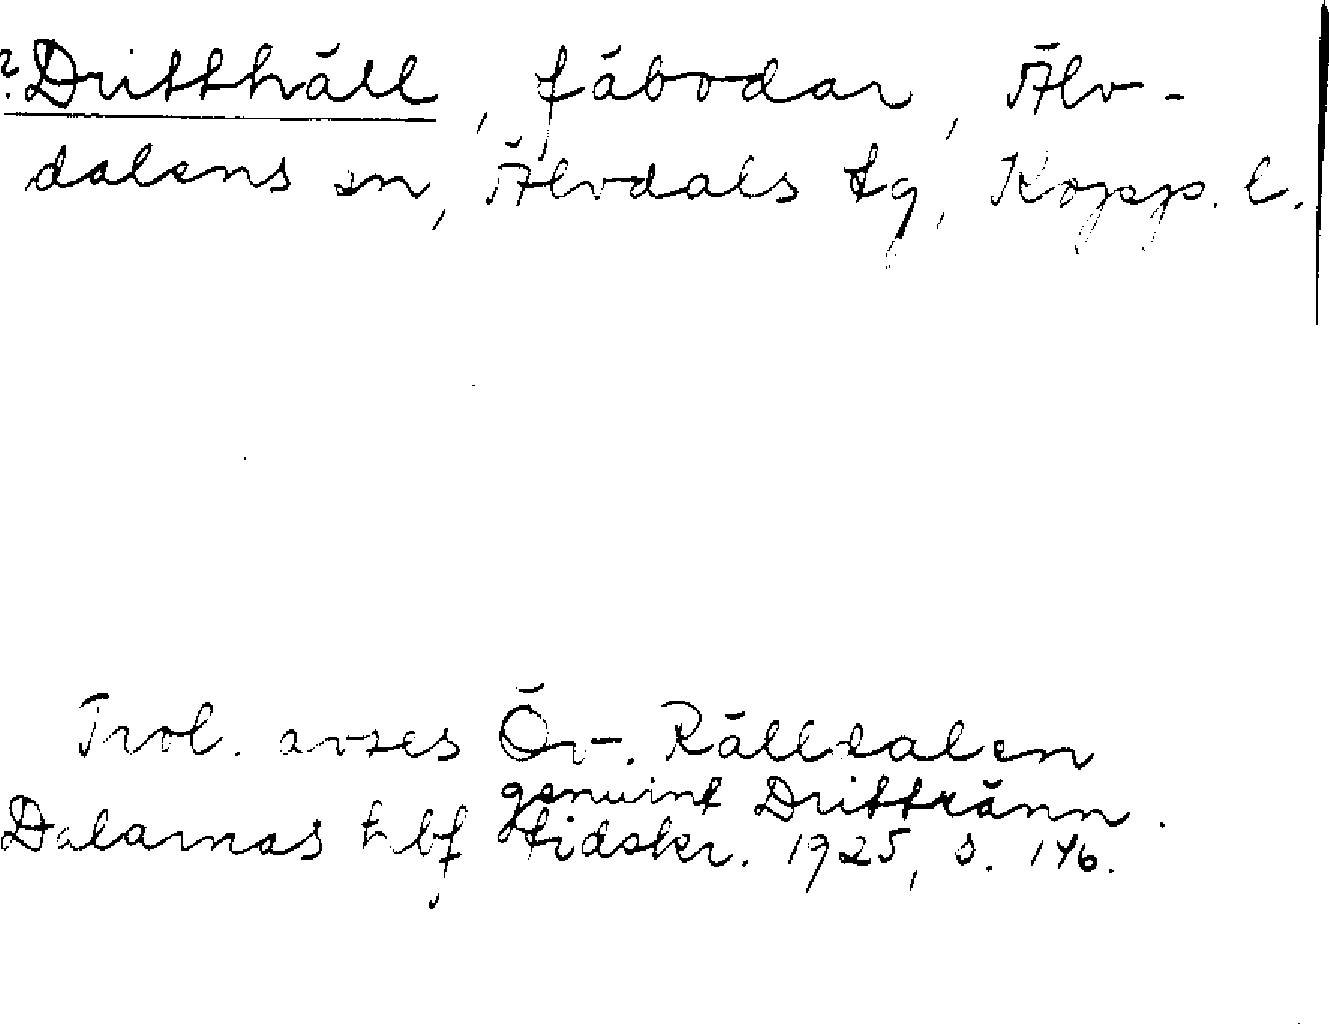 ? Dritthäll, fäbodar, Älv-
dalens sn, Älvdals tg, Kopp. l.
Trol. avses Öv. Rälldalen
genuint Drittränn.
Dalarnas hbf tidskr. 1925, s. 146.